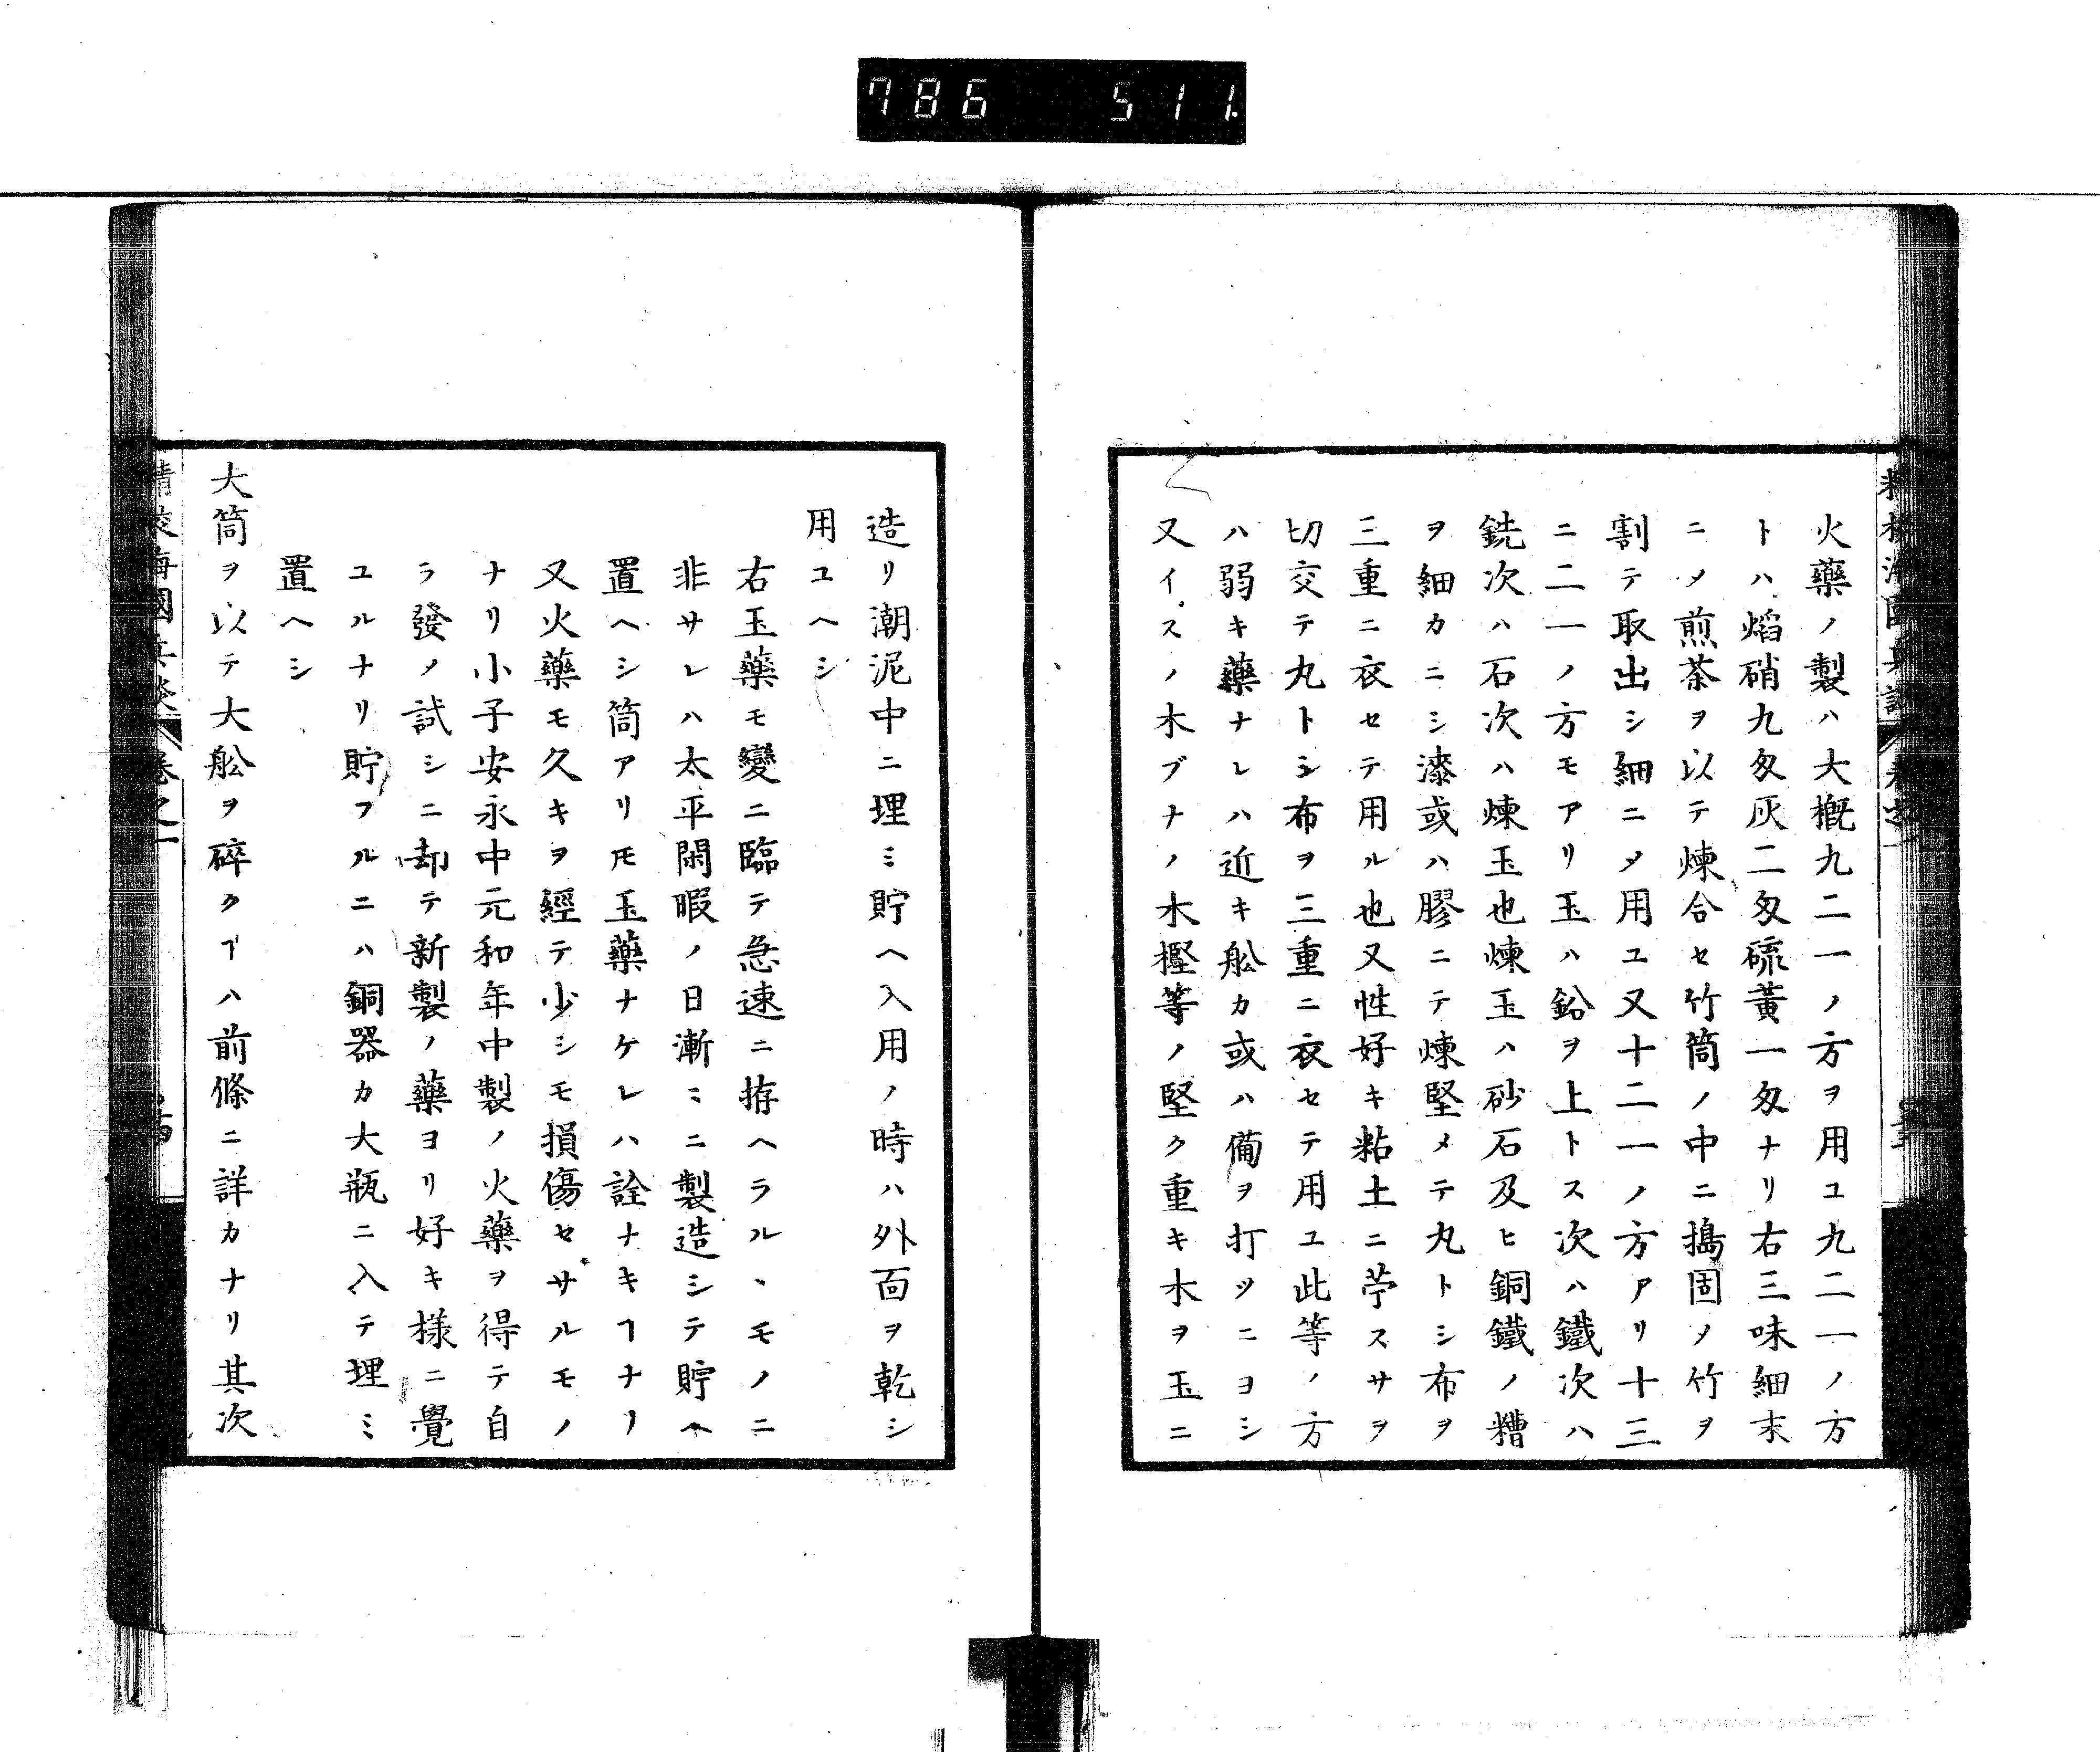 786 511.
火藥ノ製ハ大概九二一ノ方ヲ用ユ九二一ノ方
トハ焰硝九匁灰二匁硫黃一匁ナリ右三味細末
ニメ煎茶ヲ以テ煉合セ竹筒ノ中ニ搗固メ竹ヲ
割テ取出シ細ニメ用ユ又十二一ノ方アリ十三
ニ二一ノ方モアリ玉ハ鉛ヲ上トス次ハ鐵次ハ
銑次ハ石次ハ煉玉也煉玉ハ砂石及ヒ銅鐵ノ糟
ヲ細カニシ漆或ハ膠ニテ煉堅メテ丸トシ布ヲ
三重ニ衣セテ用ル也又性好キ粘土ニ苧スサヲ
切交テ丸トシ布ヲ三重ニ衣セテ用ユ此等ノ方
ハ弱キ藥ナレハ近キ舩カ或ハ備ヲ打ツニヨシ
又イスノ木ブナノ木樫等ノ堅ク重キ木ヲ玉ニ
造リ潮泥中ニ埋ミ貯ヘ入用ノ時ハ外面ヲ乾シ
用ユヘシ
右玉藥モ變ニ臨テ急速ニ拵ヘラルヽモノニ
非サレハ太平閑暇ノ日漸ミニ製造シテ貯ヘ
置ヘシ筒アリ𪜈玉藥ナケレハ詮ナキヿナリ
又火藥モ久キヲ經テ少シモ損傷セサルモノ
ナリ小子安永中元和年中製ノ火藥ヲ得テ自
ラ發ノ試シニ却テ新製ノ藥ヨリ好キ樣ニ覺
ユルナリ貯フルニハ銅器カ大瓶ニ入テ埋ミ
置ヘシ
大筒ヲ以テ大舩ヲ碎クヿハ前條ニ詳カナリ其次
精校海國兵談 卷之一